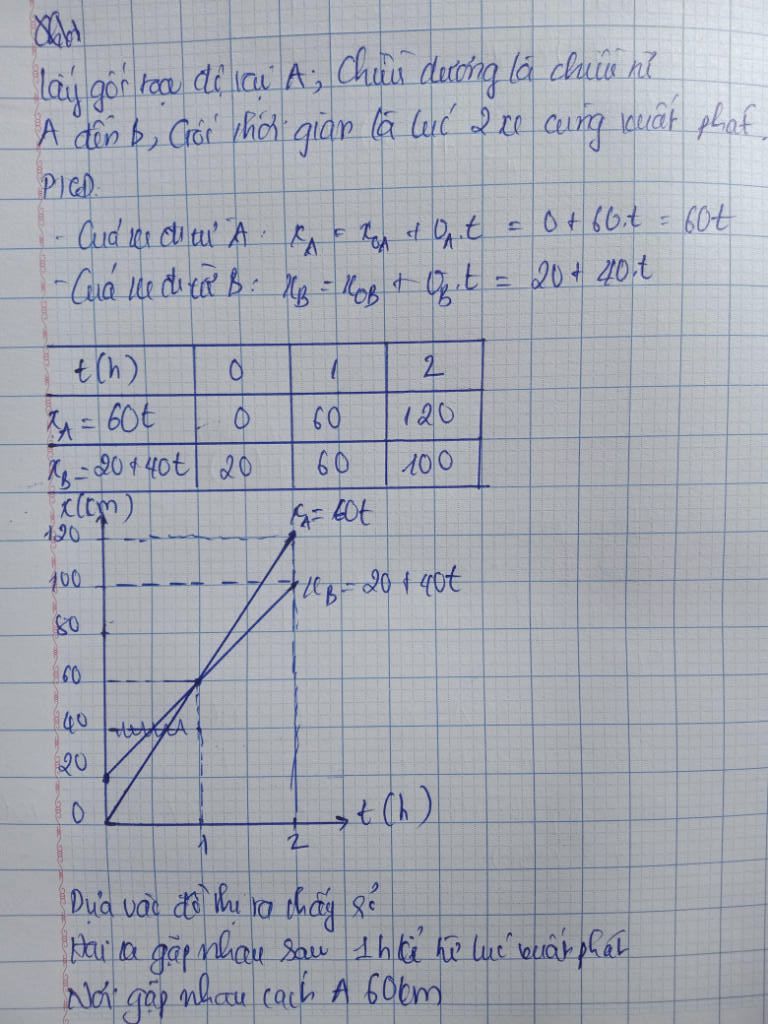 Lấy gốc toạ độ tại A; Chiều dương là chiều từ
A đến B, Gốc thời gian là lúc 2 xe cùng xuất phát.
PTCĐ.
- Của xe đi từ A: x_A = x_0A + v_A.t = 0 + 60.t = 60t
- Của xe đi từ B: x_B = x_0B + v_B.t = 20 + 40.t
t(h) 0 1 2
x_A = 60t 0 60 120
x_B = 20 + 40t 20 60 100
x(km)
x_A = 60t
120
100
x_B = 20 + 40t
80
60
40
20
0
t(h)
1 2
Dựa vào đồ thị ta thấy
Hai xe gặp nhau sau 1h kể từ lúc xuất phát
Nơi gặp nhau cách A 60km